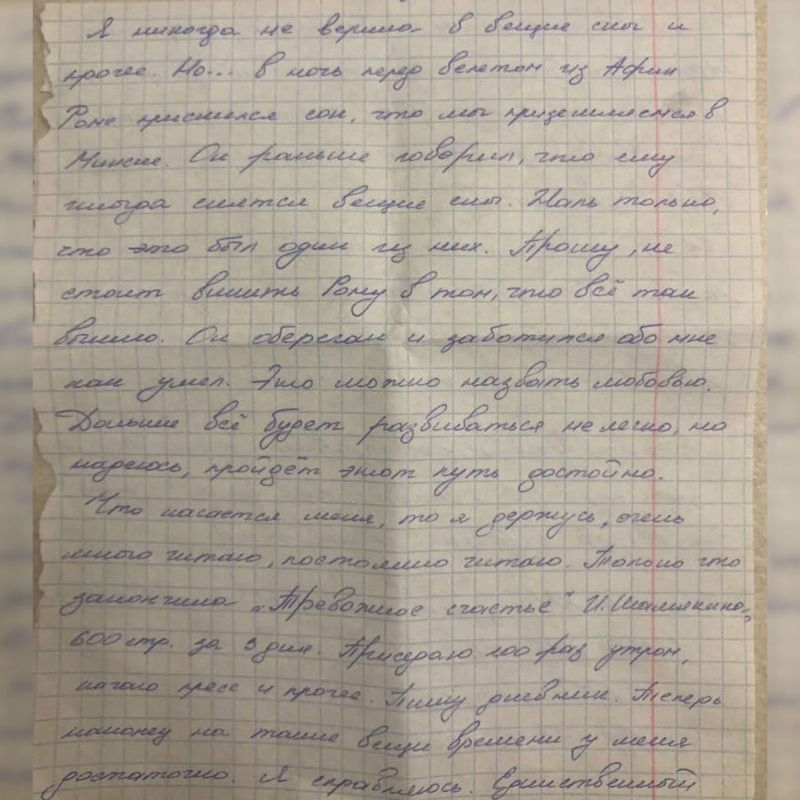 Я никогда не верила в вещие сны и
прочее. Но... в ночь перед вылетом из Афин
Роме приснился сон, что мы приземляемся в
Минске. Он раньше говорил, что ему
иногда снятся вещие сны. Жаль только,
что это был один из них. Прошу, не
стоит винить Рому в том, что всё так
вышло. Он оберегал и заботился обо мне
как умел. Это можно назвать любовью.
Дальше всё будет развиваться нелегко, но
надеюсь, пройдёт этот путь достойно.
Что касается меня, то я держусь, очень
много читаю, постоянно читаю. Только что
закончила „Тревожное счастье" И. Шамякина,
600 стр. за 3 дня. Приседаю 100 раз утром,
качаю пресс и прочее. Пишу дневник. Теперь
наконец на такие вещи времени у меня
достаточно. Я справляюсь. Единственный